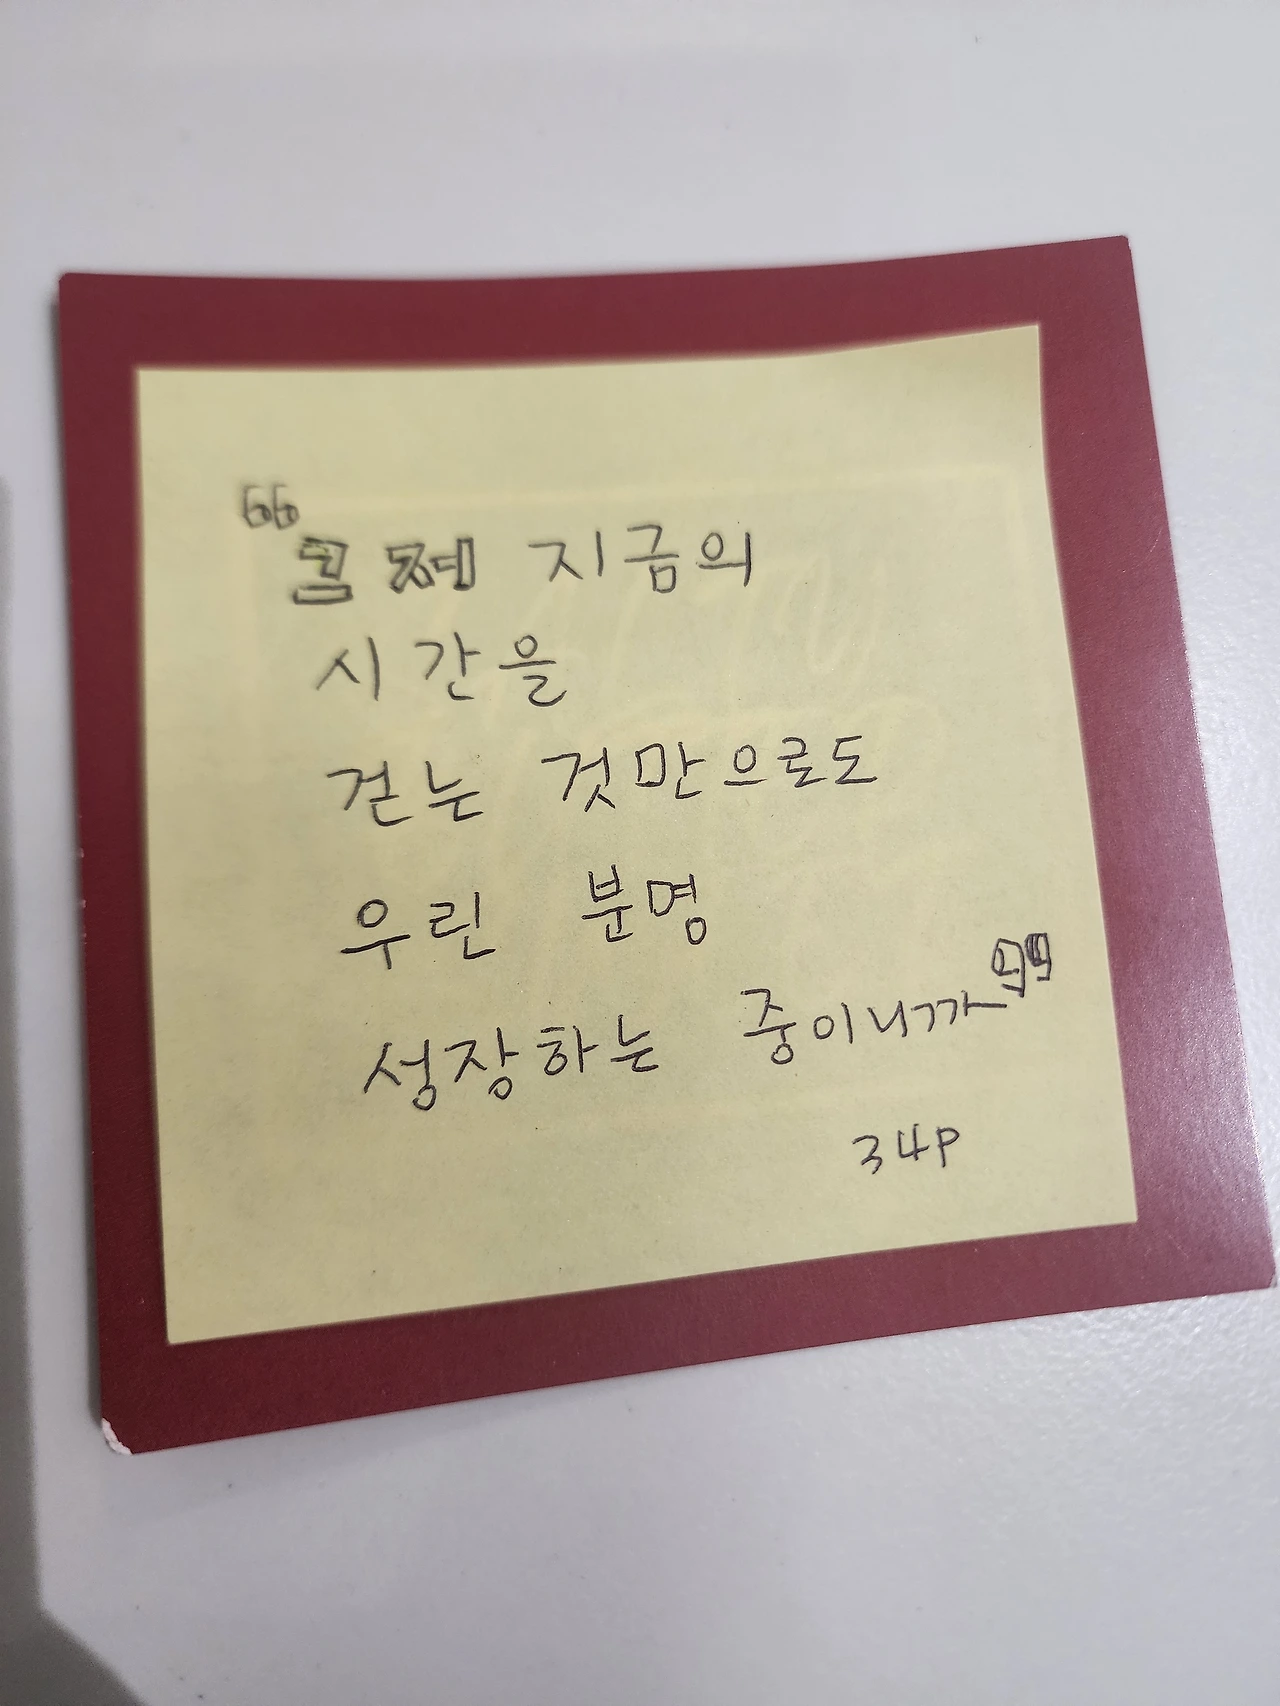 “그 저 지금의
시간을
걷는 것만으로도
우린 분명
성장하는 중이니까”
34P